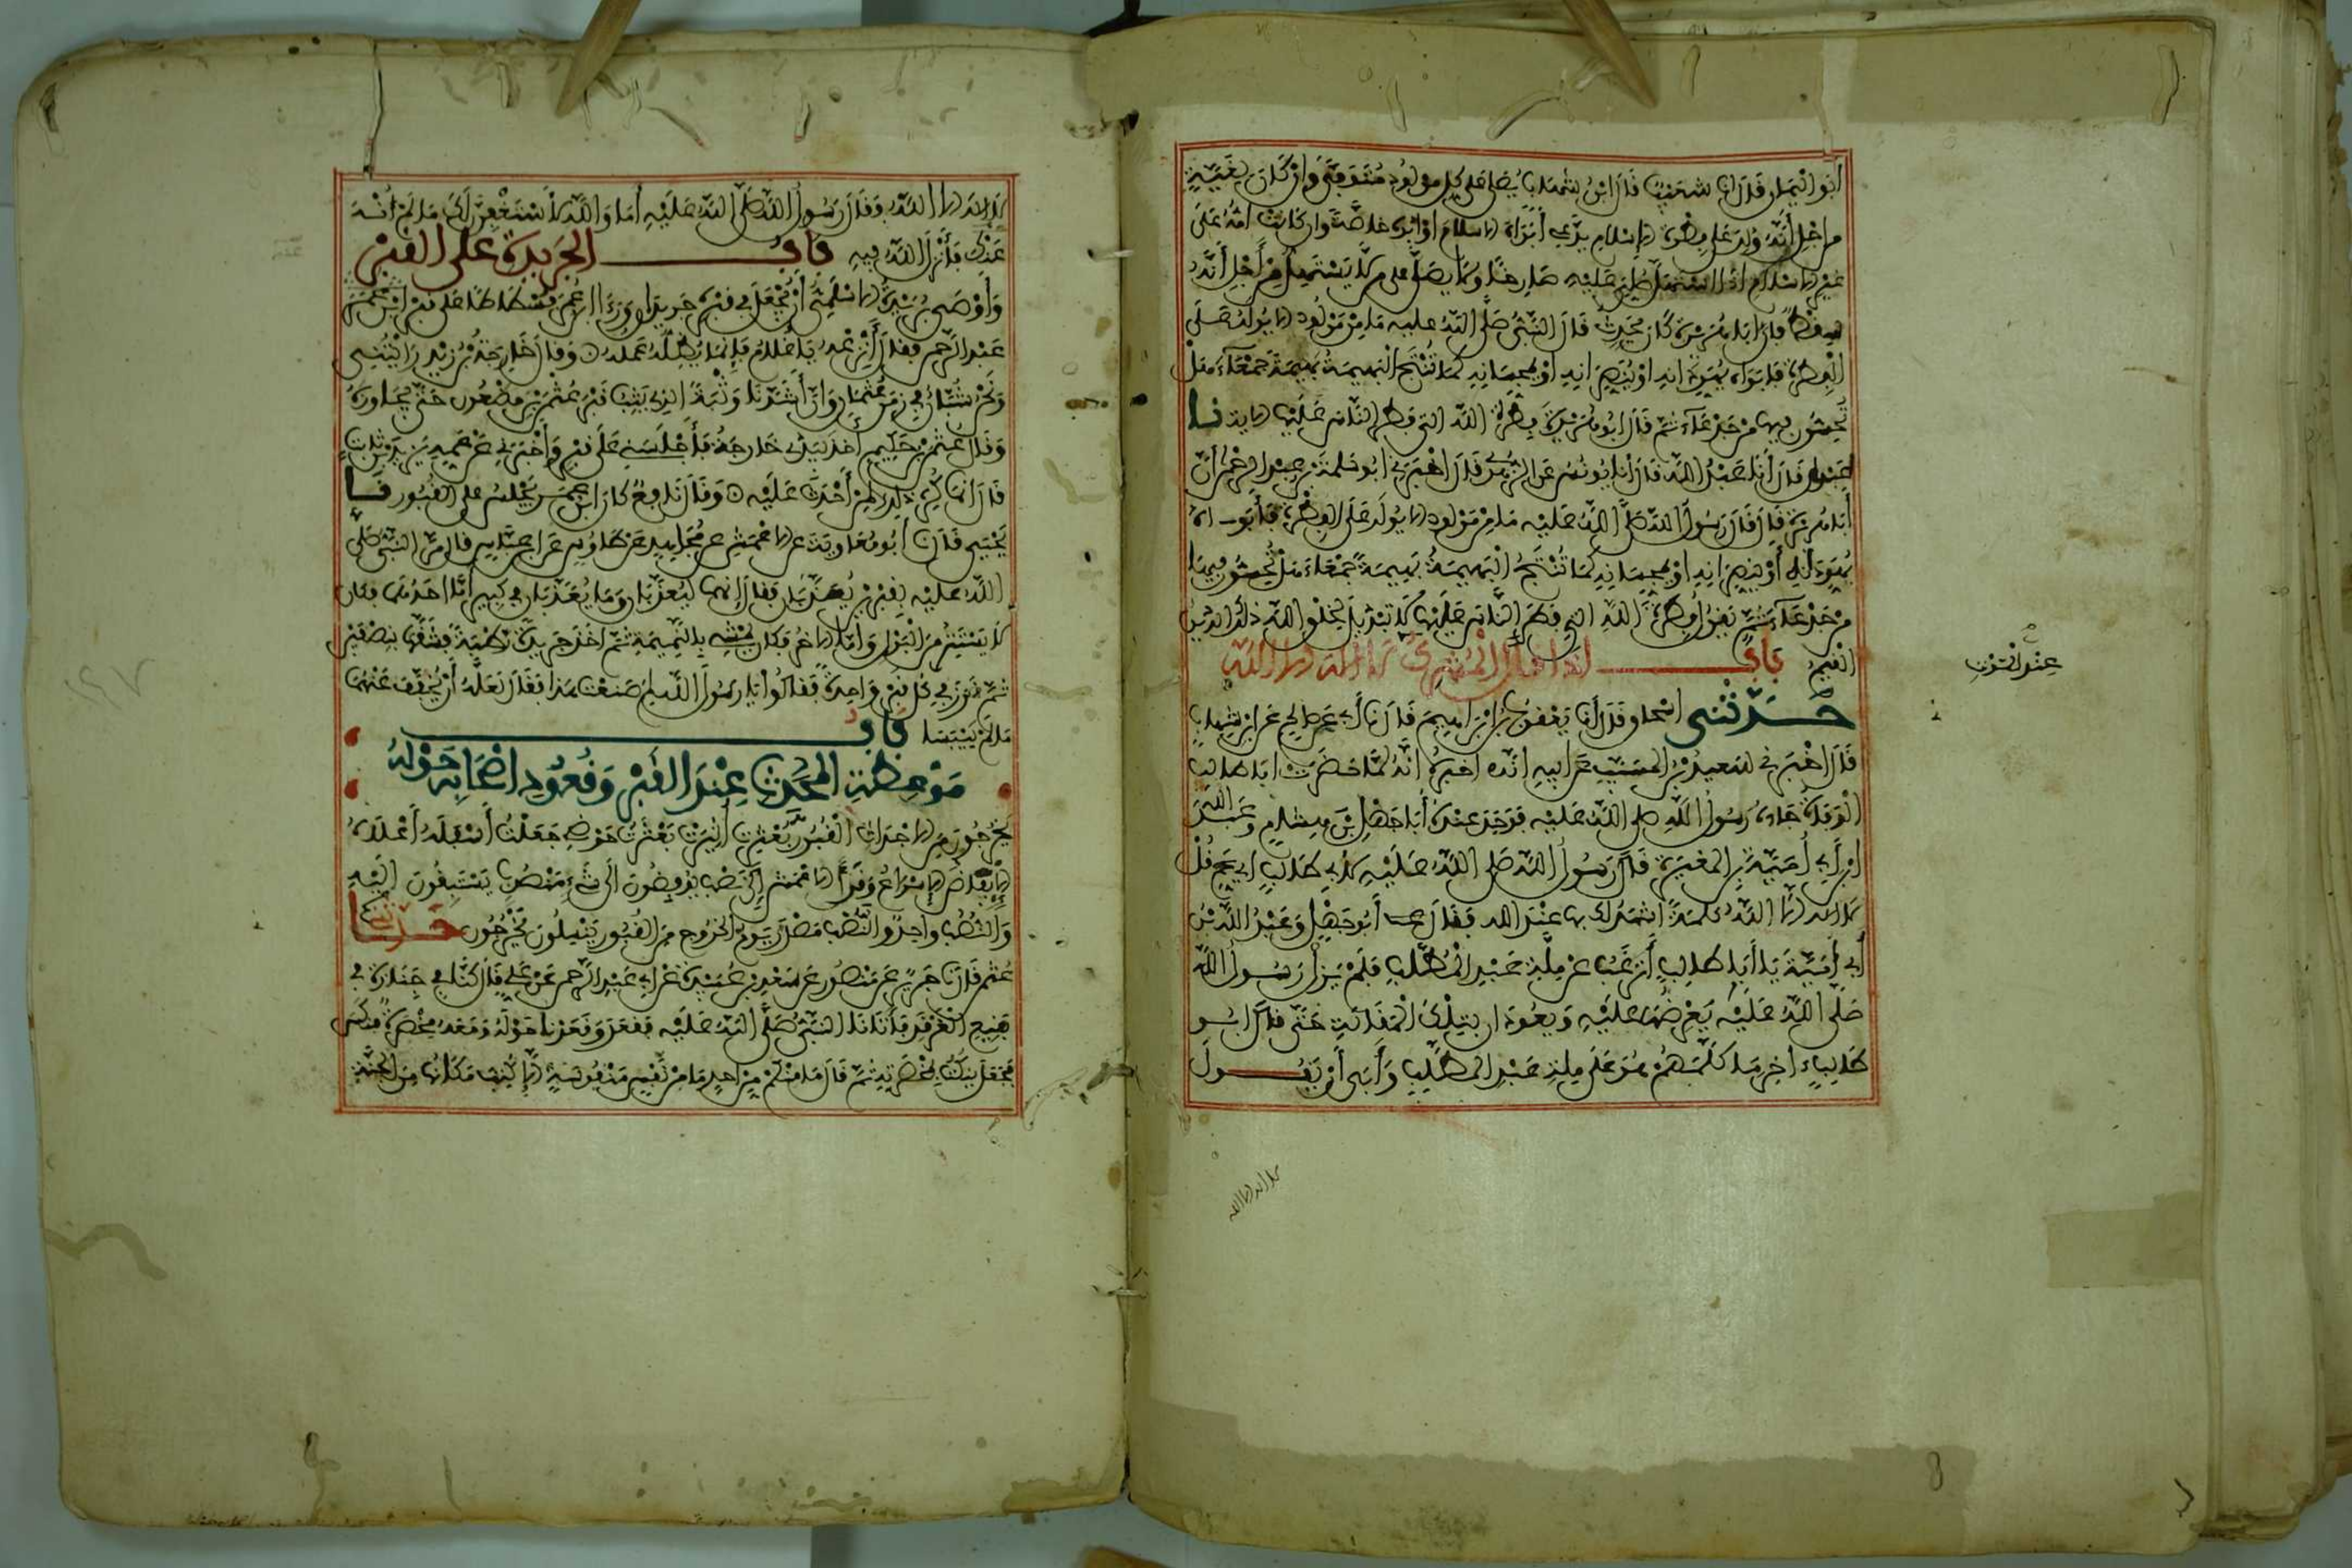 أَبُو الْيَمَانِ قَالَ انا شُعَيْبٌ قَالَ ابْنُ شِهَابٍ يُصَلَّى عَلَى كُلِّ مَوْلُودٍ مُتَوَفًّى وَإِنْ كَانَ لِغَيَّةٍ
من اجْلِ أَنَّهُ وُلِدَ عَلَى فِطْرَةِ الاسْلامِ يَدَّعِي أَبَوَاهُ الاسلامَ اوْ ابُوهُ خاصَّةً وان كانت امُّهُ عَلَى
غَيْرِ الاسْلامِ اذَا اسْتَهَلَّ صَارِخًا صُلِّيَ عَلَيْهِ وَلَا يُصَلَّى على مَن لَّا يَسْتَهِلُّ مِنْ أَجْلِ أَنَّهُ
سِقْطٌ فَإِنَّ ابَا هُرَيْرَةَ كَانَ يُحَدِّثُ قَالَ النَّبِيُّ صَلَّى اللَّهُ عليه مَا مِنْ مَوْلُودٍ الا يُولَدُ عَلَى
الْفِطْرَةِ فَابَوَاهُ يُهَوِّدَانِهِ اوْ يُنَصِّرَانِهِ اوْ يُمَجِّسَانِهِ كَمَا تُنْتَجُ الْبَهِيمَةُ بَهِيمَةً جَمْعَاءَ هَلْ
تُحِسُّونَ فِيهَا مِنْ جَدْعَاءَ ثُمَّ قَالَ ابُو هُرَيْرَةَ فِطْرَةَ اللَّهِ التي فَطَرَ النَّاسَ عَلَيْهَا الاية نا
عَبْدَانُ قَالَ أَنَا عَبْدُ اللَّهِ قَالَ أَنَا يُونُسُ عَنِ الزُّهْرِيِّ قَالَ اخْبَرَنِي ابُو سَلَمَةَ بْنُ عَبْدِ الرَّحْمَنِ أَنَّ
أَبَا هُرَيْرَةَ قَالَ قَالَ رَسُولُ اللَّهِ صَلَّى اللَّهُ عَلَيْهِ مَا مِنْ مَوْلُودٍ الا يُولَدُ عَلَى الْفِطْرَةِ فَأَبَوَاهُ
يُهَوِّدَانِهِ أَوْ يُنَصِّرَانِهِ اوْ يُمَجِّسَانِهِ كَمَا تُنْتَجُ الْبَهِيمَةُ بَهِيمَةً جَمْعَاءَ هَلْ تُحِسُّونَ فِيهَا
مِنْ جَدْعَاءَ ثُمَّ يَقُولُ فِطْرَةَ اللَّهِ التي فَطَرَ النَّاسَ عَلَيْهَا لَا تَبْدِيلَ لِخَلْقِ اللَّهِ ذَلِكَ الدِّينُ
الْقَيِّمُ بَابٌ اذَا قَالَ الْمُشْرِكُ لا اله الا اللَّه
عِنْدَ الْمَوْتِ
حَدَّثَنِي اسْحَاق قَالَ أَنَا يَعْقُوبُ بْنُ ابْرَاهِيمَ قَالَ نا أَبِي عَن صَالِحٍ عَنِ ابْنِ شِهَابٍ
قَالَ اخْبَرَنِي سَعِيدُ بْنُ الْمُسَيِّبِ عَن ابِيهِ انَّهُ اخبره أَنَّهُ لَمَّا حَضَرَتْ ابَا طَالِبٍ
الْوَفَاةُ جَاءَهُ رَسُولُ اللَّهِ صلى اللَّهُ عَلَيْهِ فَوَجَدَ عِنْدَهُ أَبَا جَهْلِ بْنَ هِشَامٍ وَعَبْدَ اللهِ
ابْنَ أَبِي أُمَيَّةَ بْنِ الْمُغِيرَةِ قَالَ رَسُولُ اللَّهِ صَلى اللَّهُ عَلَيْهِ لأَبِي طَالِبٍ اي عَمِّ قُلْ
لا اله الّا اللَّهُ كَلِمَةً اشْهَدُ لَكَ بها عِنْدَ الله فَقَالَ أَبُو جَهْلٍ وَعَبْدُ اللَّهِ بْنُ
أَبِي أُمَيَّةَ يَا أَبَا طَالِبٍ أَتَرْغَبُ عَنْ مِلَّةِ عَبْدِ الْمُطَّلِبِ فَلَمْ يَزَلْ رَسُولُ اللَّهِ
صَلَّى اللَّهُ عَلَيْهِ يَعْرِضُهَا عَلَيْهِ وَيَعُودَانِ بِتِلْكَ الْمَقَالَةِ حَتَّى قَالَ ابُو
طَالِبٍ اخِرَ مَا كَلَّمَهُمْ هُوَ عَلَى مِلَّةِ عَبْدِ الْمُطَّلِبِ وَأَبَى أَنْ يَقُولَ
لا اله الا الله
لا الهَ الا اللَّهُ وَقَالَ رَسُولُ اللَّهِ صَلَّى اللَّهُ عَلَيْهِ أَمَا وَاللَّهِ لأَسْتَغْفِرَنَّ لَكَ مَا لَمْ أُنْهَ
عَنْكَ فَأَنْزَلَ اللَّهُ فِيهِ بَابُ الْجَرِيدَةِ عَلَى الْقَبْرِ
وَأَوْصَى بُرَيْدَةُ الاسْلَمِيُّ أَنْ يُجْعَلَ فِي قَبْرِهِ جَرِيدَانِ وَرَءَا ابْنُ عُمَرَ فُسْطَاطًا عَلَى قَبْرِ
عَبْدِ الرَّحْمَنِ فَقَالَ أَنْزِعْهُ يَا غُلَامُ فَإِنَّمَا يُظِلُّهُ عَمَلُهُ وَقَالَ خَارِجَةُ بْنُ زَيْدٍ رَأَيْتُنِي
وَنَحْنُ شُبَّانٌ فِي زَمَنِ عُثْمَانَ وَانَّ أَشَدَّنَا وَثْبَةً الذي يَثِبُ قَبْرَ عُثْمَانَ بْنِ مَظْعُونٍ حَتَّى يُجَاوِزَهُ
وَقَالَ عُثْمَانُ بْنُ حَكِيمٍ أَخَذَ بِيَدِي خَارِجَةُ فَأَجْلَسَنِي عَلَى قَبْرٍ وَأَخْبَرَنِي عَنْ عَمِّهِ يَزِيدَ بْنِ ثَابِتٍ
قَالَ انَّمَا كُرِهَ ذَلِكَ لِمَنْ أَحْدَثَ عَلَيْهِ وَقَالَ نَافِعٌ كَانَ ابْنُ عُمَرَ يَجْلِسُ على الْقُبُورِ نا
يَحْيَى قَالَ نا أَبُو مُعَاوِيَةَ عَنِ الاعْمَشِ عن مُجَاهِدٍ عَنْ طَاوُسٍ عَنِ ابْنِ عَبَّاسٍ قَالَ مَرَّ النَّبِيُّ صَلَّى
اللَّهُ عَلَيْهِ بِقَبْرَيْنِ يُعَذَّبَانِ فَقَالَ إِنَّهُمَا لَيُعَذَّبَانِ وَمَا يُعَذَّبَانِ فِي كَبِيرٍ أَمَّا احَدُهُمَا فَكَانَ
لَا يَسْتَتِرُ مِنَ الْبَوْلِ وَأَمَّا الاخَرُ فَكَانَ يَمْشِي بِالنَّمِيمَةِ ثُمَّ اخَذَ جَرِيدَةً رَطْبَةً فَشَقَّهَا بِنِصْفَيْنِ
ثُمَّ غَرَزَ فِي كُلِّ قَبْرٍ وَاحِدَةً فَقَالُوا يَا رَسُولَ اللَّهِ لِمَ صَنَعْتَ هَذَا فَقَالَ لَعَلَّهُ أَنْ يُخَفَّفَ عَنْهُمَا
مَا لَمْ يَيْبَسَا بَابُ
مَوْعِظَةِ الْمُحَدِّثِ عِنْدَ الْقَبْرِ وَقُعُودِ اصْحَابِهِ حَوْلَهُ
يَخْرُجُونَ مِنَ الاجْدَاثِ الْقُبُورِ بُعْثِرَتْ اثِيرَتْ بَعْثَرْتُ حَوْضِي جَعَلْتُ أَسْفَلَهُ أَعْلَاهُ
الإِيفَاضُ الإِسْرَاعُ وَقَرَأَ الاعْمَشُ إِلَى نَصْبٍ يُوفِضُونَ الَى شَيْءٍ مَنْصُوبٍ يَسْتَبِقُونَ الَيْهِ
وَالنُّصْبُ وَاحِدٌ وَالنَّصْبُ مَصْدَرٌ يَوْمُ الْخُرُوجِ مِنَ الْقُبُورِ يَنْسِلُونَ يَخْرُجُونَ حَدَّثَنَا
عُثْمَانُ قَالَ نا جَرِيرٌ عَنْ مَنْصُورٍ عَنْ سَعْدِ بْنِ عُبَيْدَةَ عَنْ أَبِي عَبْدِ الرَّحْمَنِ عَنْ عَلِيٍّ قَالَ كُنَّا فِي جَنَازَةٍ فِي
بَقِيعِ الْغَرْقَدِ فَأَتَانَا النَّبِيُّ صَلَّى اللَّهُ عَلَيْهِ فَقَعَدَ وَقَعَدْنَا حَوْلَهُ وَمَعَهُ مِخْصَرَةٌ فَنَكَّسَ
فَجَعَلَ يَنْكُتُ بِمِخْصَرَتِهِ ثُمَّ قَالَ مَا مِنْكُمْ مِنْ احَدٍ مَا مِنْ نَفْسٍ مَنْفُوسَةٍ الَّا كُتِبَ مَكَانُهَا مِنَ الْجَنَّةِ